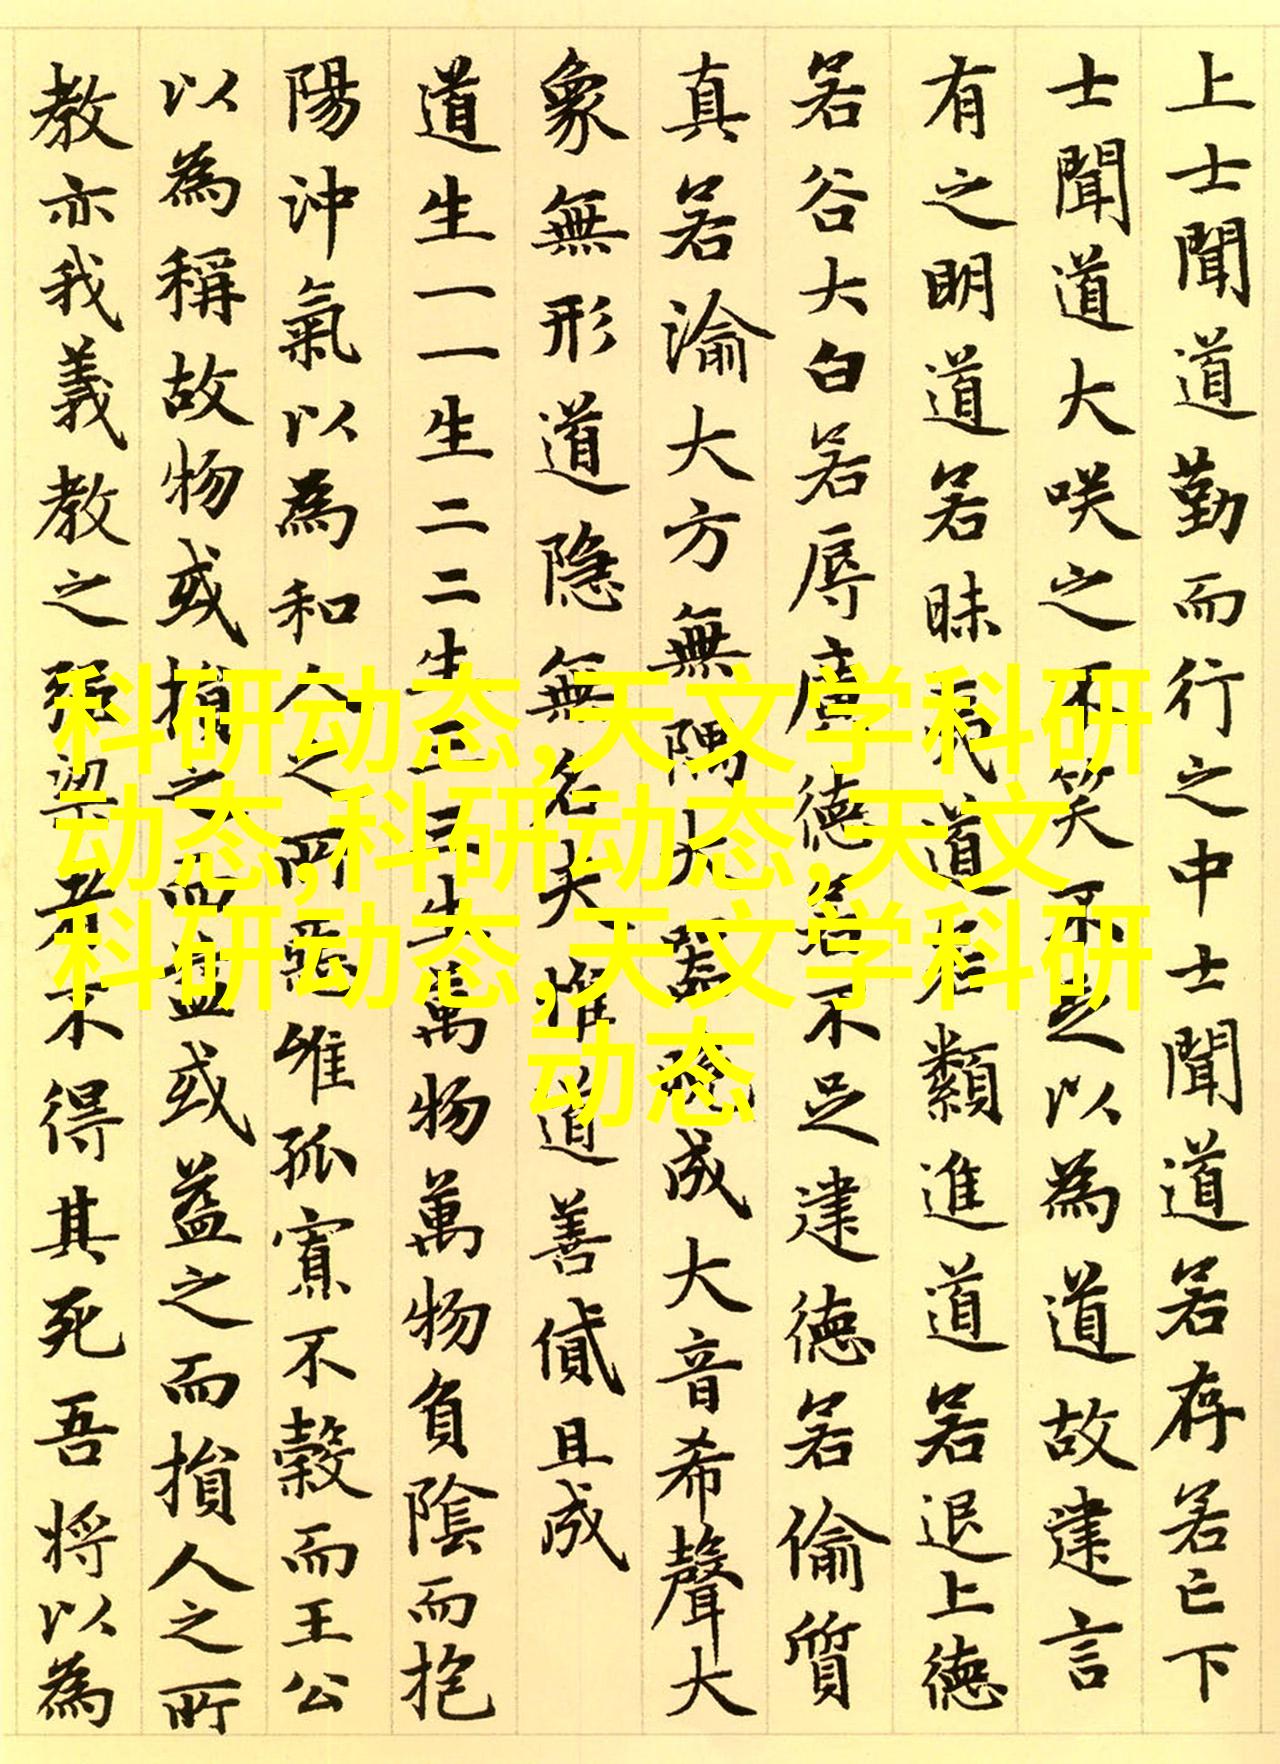 上士聞道勤而行之中士聞道若存若亡下
士聞道大咲之不笑不足以為道故建言
有之明道若昧夷道若類進道若退上德
若谷大白若辱廣德若不足建德若偷質
真若渝大方無隅大器晚成大音希聲大
象無形道隱無名夫惟道善貸且成
道生一一生二二生三三生萬物萬物負陰而抱
陽沖氣以為和人之所惡唯孤寡不穀而王公
以為稱故物或損之而益或益之而損人之所
教亦我義教之強梁者不得其死吾將以為
科研动态,天文学科研
动态,科研动态,天文
科研动态,天文学科研
动态